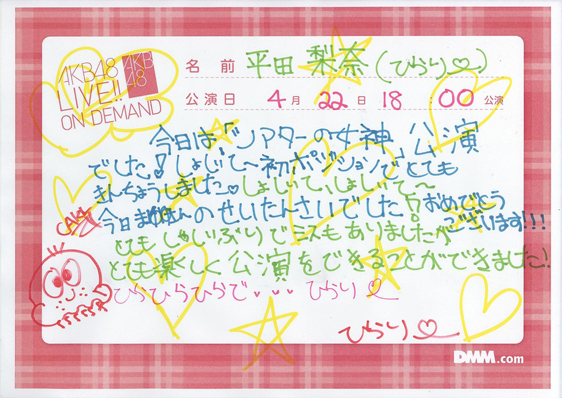 AKB48
LIVE!!
ON DEMAND
AKB
48
名前 平田 梨奈 (ひらりー)
公演日 4月 22日 18:00 公演
今日は「シアターの女神」公演
でした! しょじて〜初ポジションでとても
きんちょうしました。しょじて、しょじて〜
今日まゆさんのせいたんさいでした! おめでとう
ございます!!!
とても しゃしぶりでミスもありましたが
とても楽しく公演をできることができました!
ひらひらひらで... ひらりー
ひらりー
DMM.com